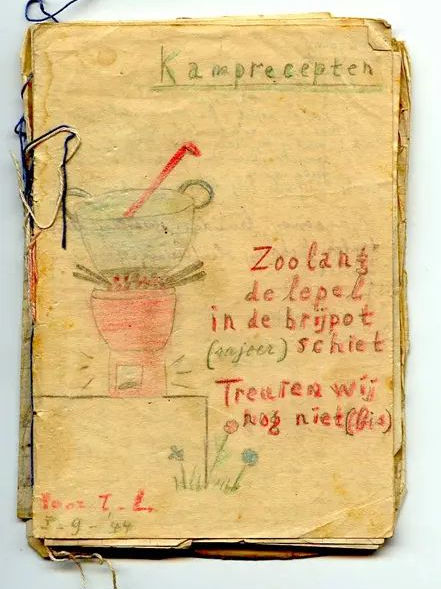 Kamprecepten
Zoolang
de lepel
in de brijpot
(sajoer) schiet
Treuren wij
nog niet (bis)
Voor T.-L.
-9-'44